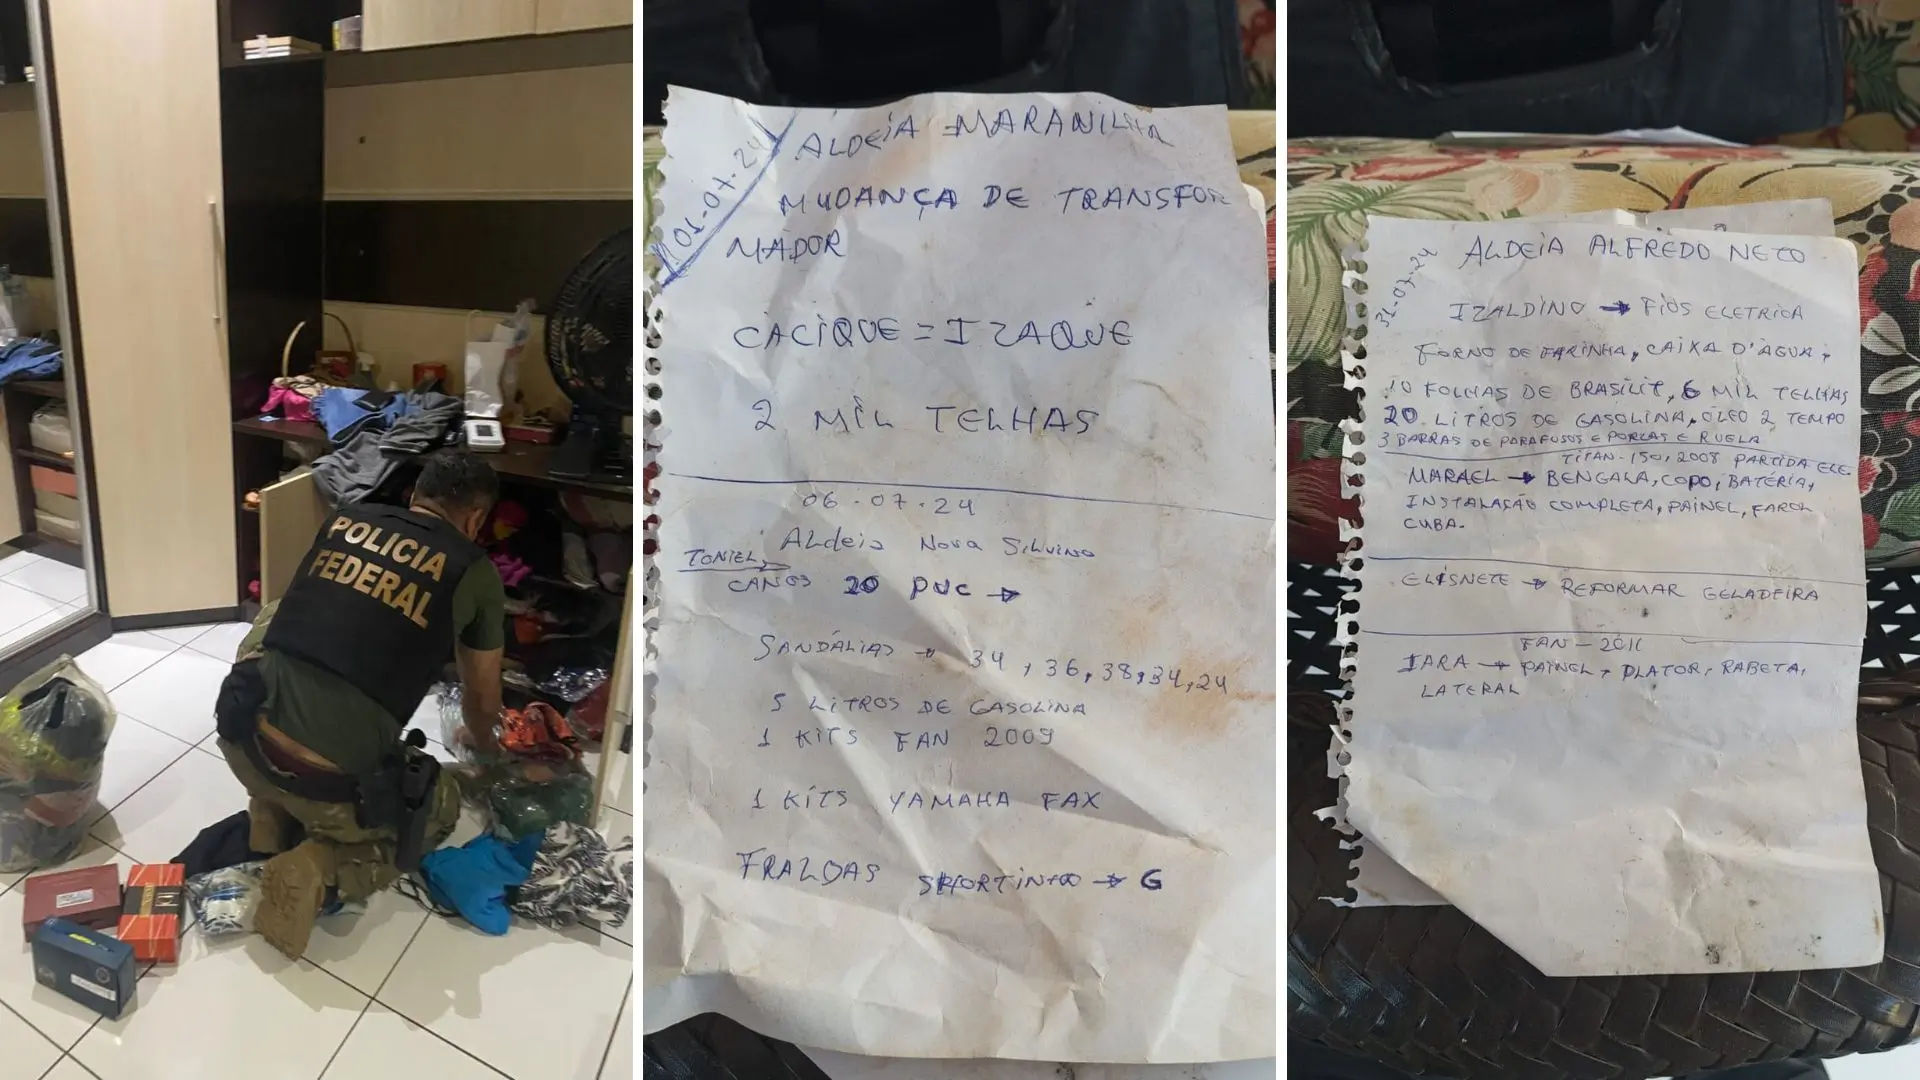 POLICIA
FEDERAL
01-07-24
ALDEIA = MARANILHA
MUDANÇA DE TRANSFOR
MADOR
CACIQUE = IZAQUE
2 MIL TELHAS
06-07-24
Aldeia Nova Silvino
TONIEL
CANOS 20 PVC →
SANDÁLIAS → 34, 36, 38, 34, 24
5 LITROS DE GASOLINA
1 KITS FAN 2009
1 KITS YAMAHA FAX
FRALDAS → G
31-07-24
ALDEIA ALFREDO NETO
IZALDINO → FIOS ELETRICA
FORNO DE FARINHA, CAIXA D'AGUA,
10 FOLHAS DE BRASILIT, 6 MIL TELHAS
20 LITROS DE GASOLINA, OLEO 2 TEMPO
3 BARRAS DE PARAFUSOS E PORCAS E RUELA
TITAN-150, 2008 PARTIDA ELE.
MARAEL → BENGALA, COPO, BATERIA,
INSTALAÇÃO COMPLETA, PAINEL, FAROL
CUBA.
ELISNETE → REFORMAR GELADEIRA
FAN-2011
IARA → PAINEL, PLATOR, RABETA,
LATERAL